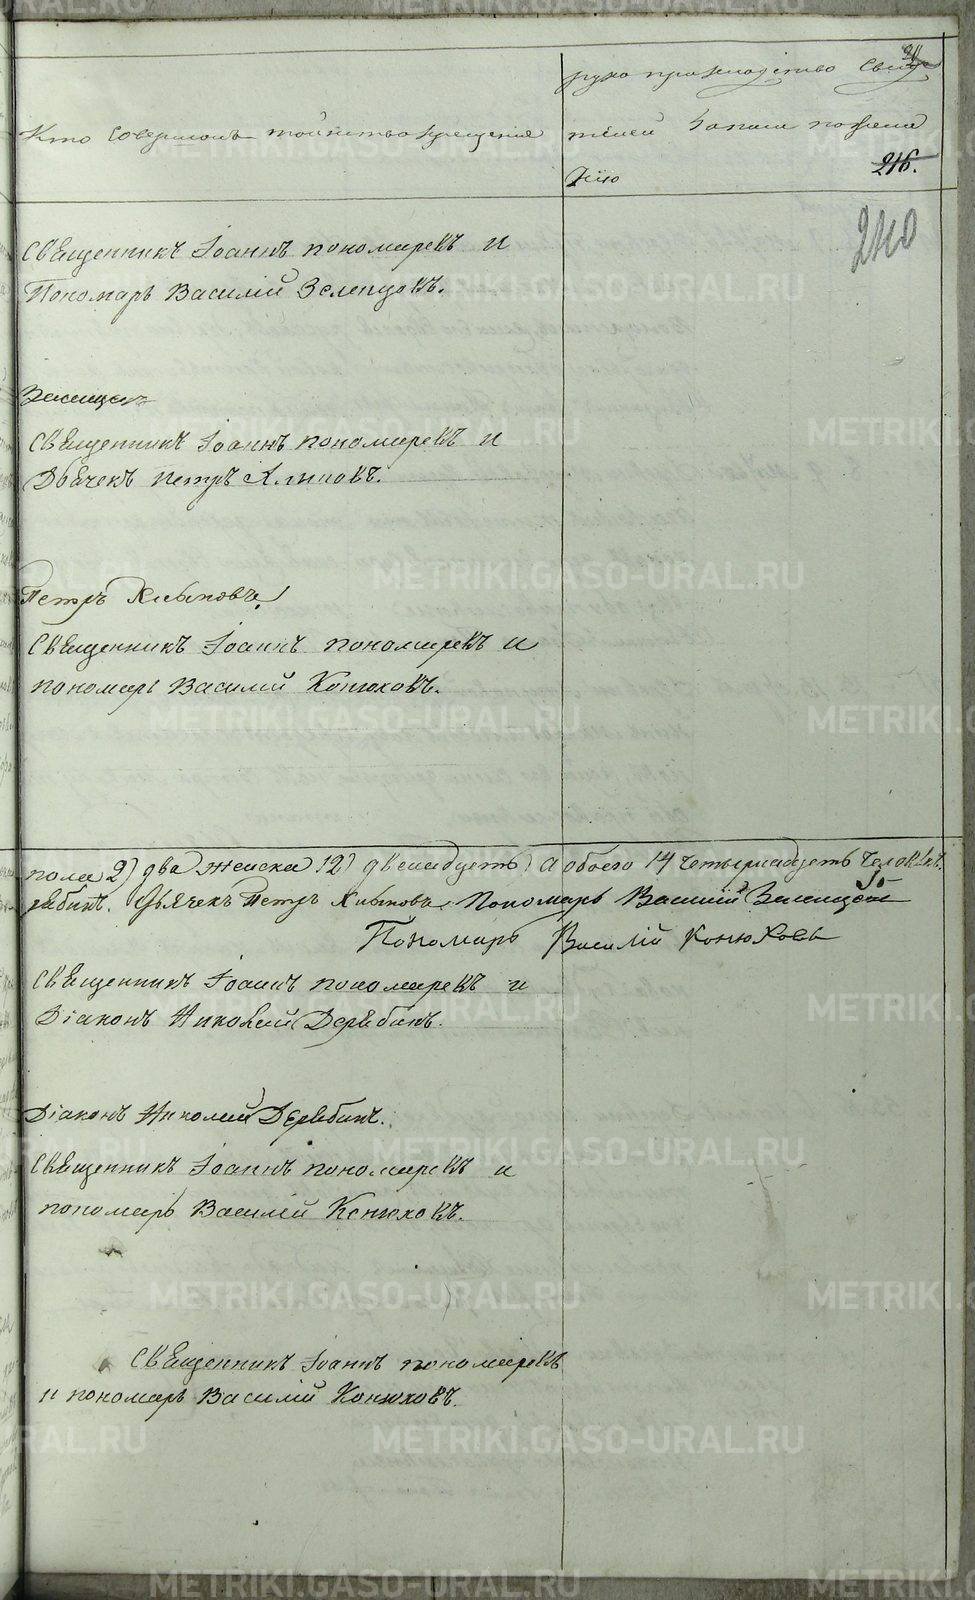 Кто совершалъ таинство крещенія
рукоприкладство свиде
телей записи пожела
нію
216.
240
Священникъ Іоаннъ пономаревъ и
Пономарь Василій Зеленцовъ.
Священникъ Іоаннъ пономаревъ и
Дьячекъ петръ
Петръ
Священникъ Іоаннъ пономаревъ и
пономарь Василій Конюховъ.
пола 2) два женска 12) двенадцеть) а обоего 14 четырнадцеть человѣкъ.
Дьячекъ Петръ Пономарь Василій Зеленцовъ
Пономарь Василій Конюховъ
Священникъ Іоаннъ пономаревъ и
Діаконъ Николай Дерябинъ.
Діаконъ Николай Дерябинъ.
Священникъ Іоаннъ пономаревъ и
пономарь Василій Конюховъ.
Священникъ Іоаннъ пономаревъ
и пономарь Василій Конюховъ.
METRIKI.GASO-URAL.RU